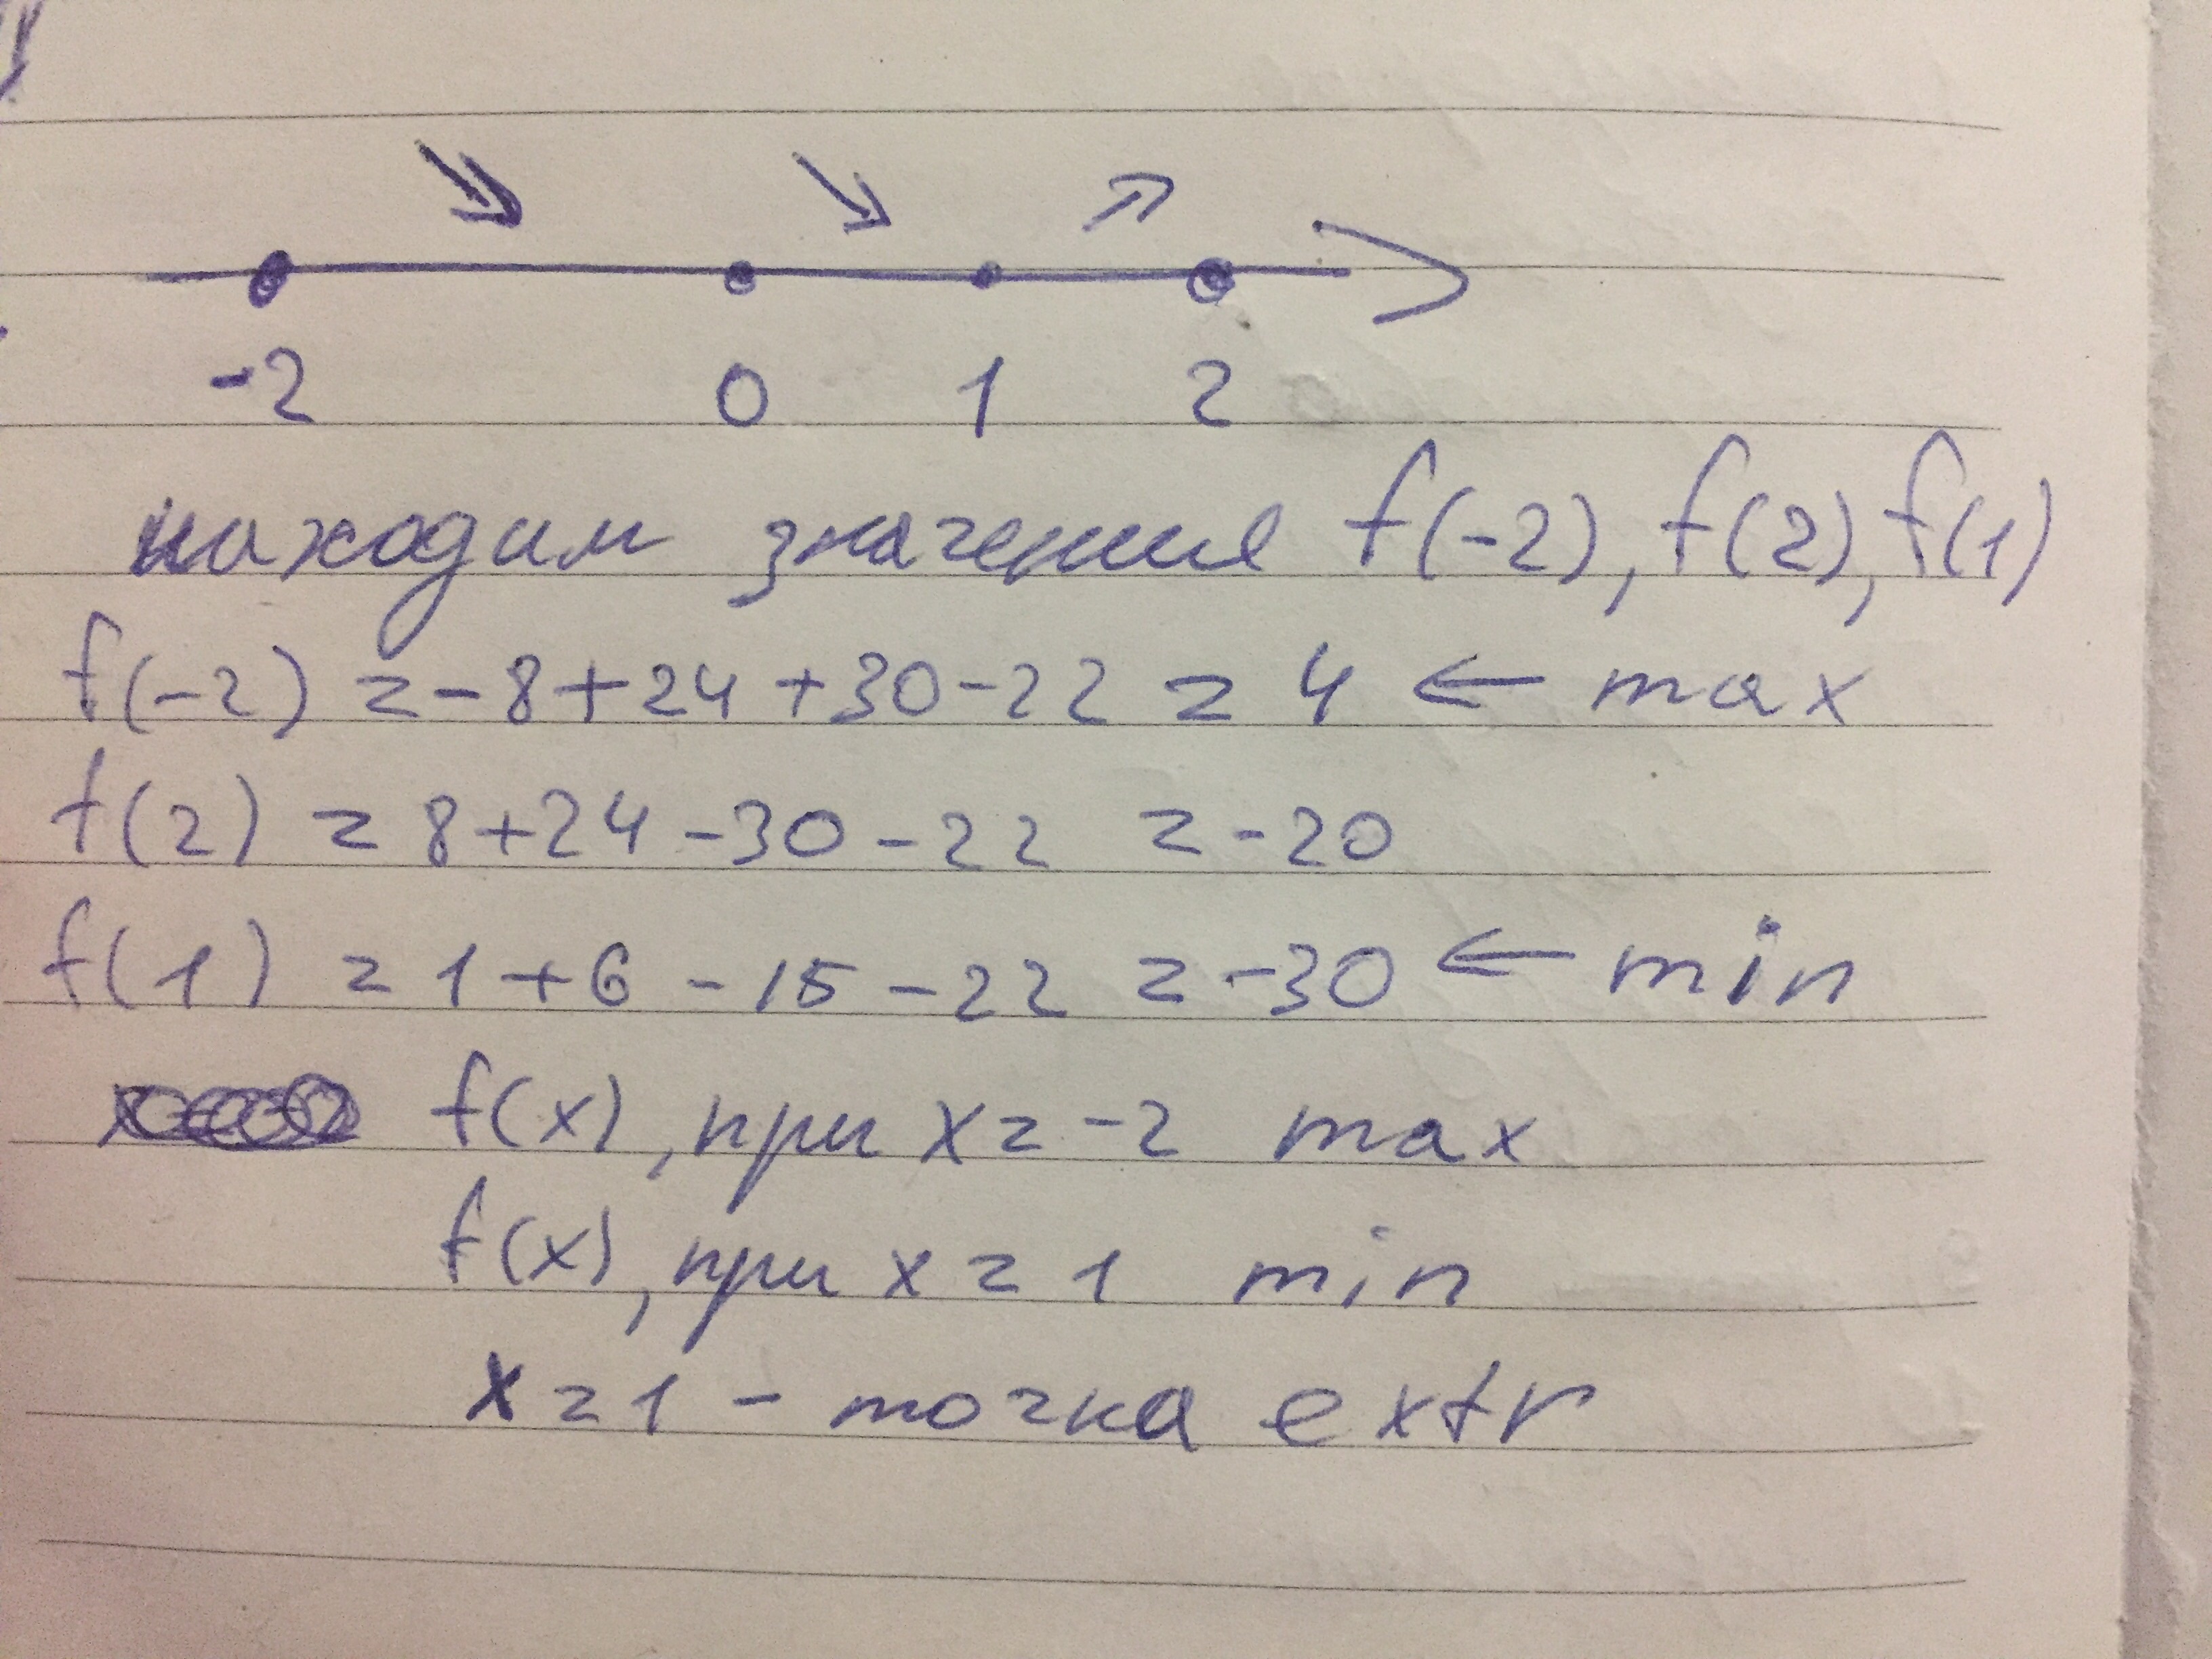 -2 0 1 2
находим значения f(-2), f(2), f(1)
f(-2) = -8+24+30-22 = 4 ← max
f(2) = 8+24-30-22 = -20
f(1) = 1+6-15-22 = -30 ← min
f(x), при x = -2 max
f(x), при x = 1 min
x = 1 - точка extr